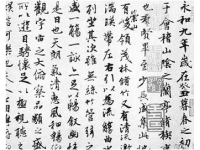 永和九年歲在癸丑暮春之初
于會稽山陰之蘭亭脩
也群賢畢至少長咸
領茂林脩竹又有清流激
湍暎帶左右引以為流觴曲水
列坐其次雖無絲竹管弦之
盛一觴一詠亦足以暢敘幽
是日也天朗氣清惠風和暢
觀宇宙之大俯察品類之盛
所以遊目騁懷足以極視聽